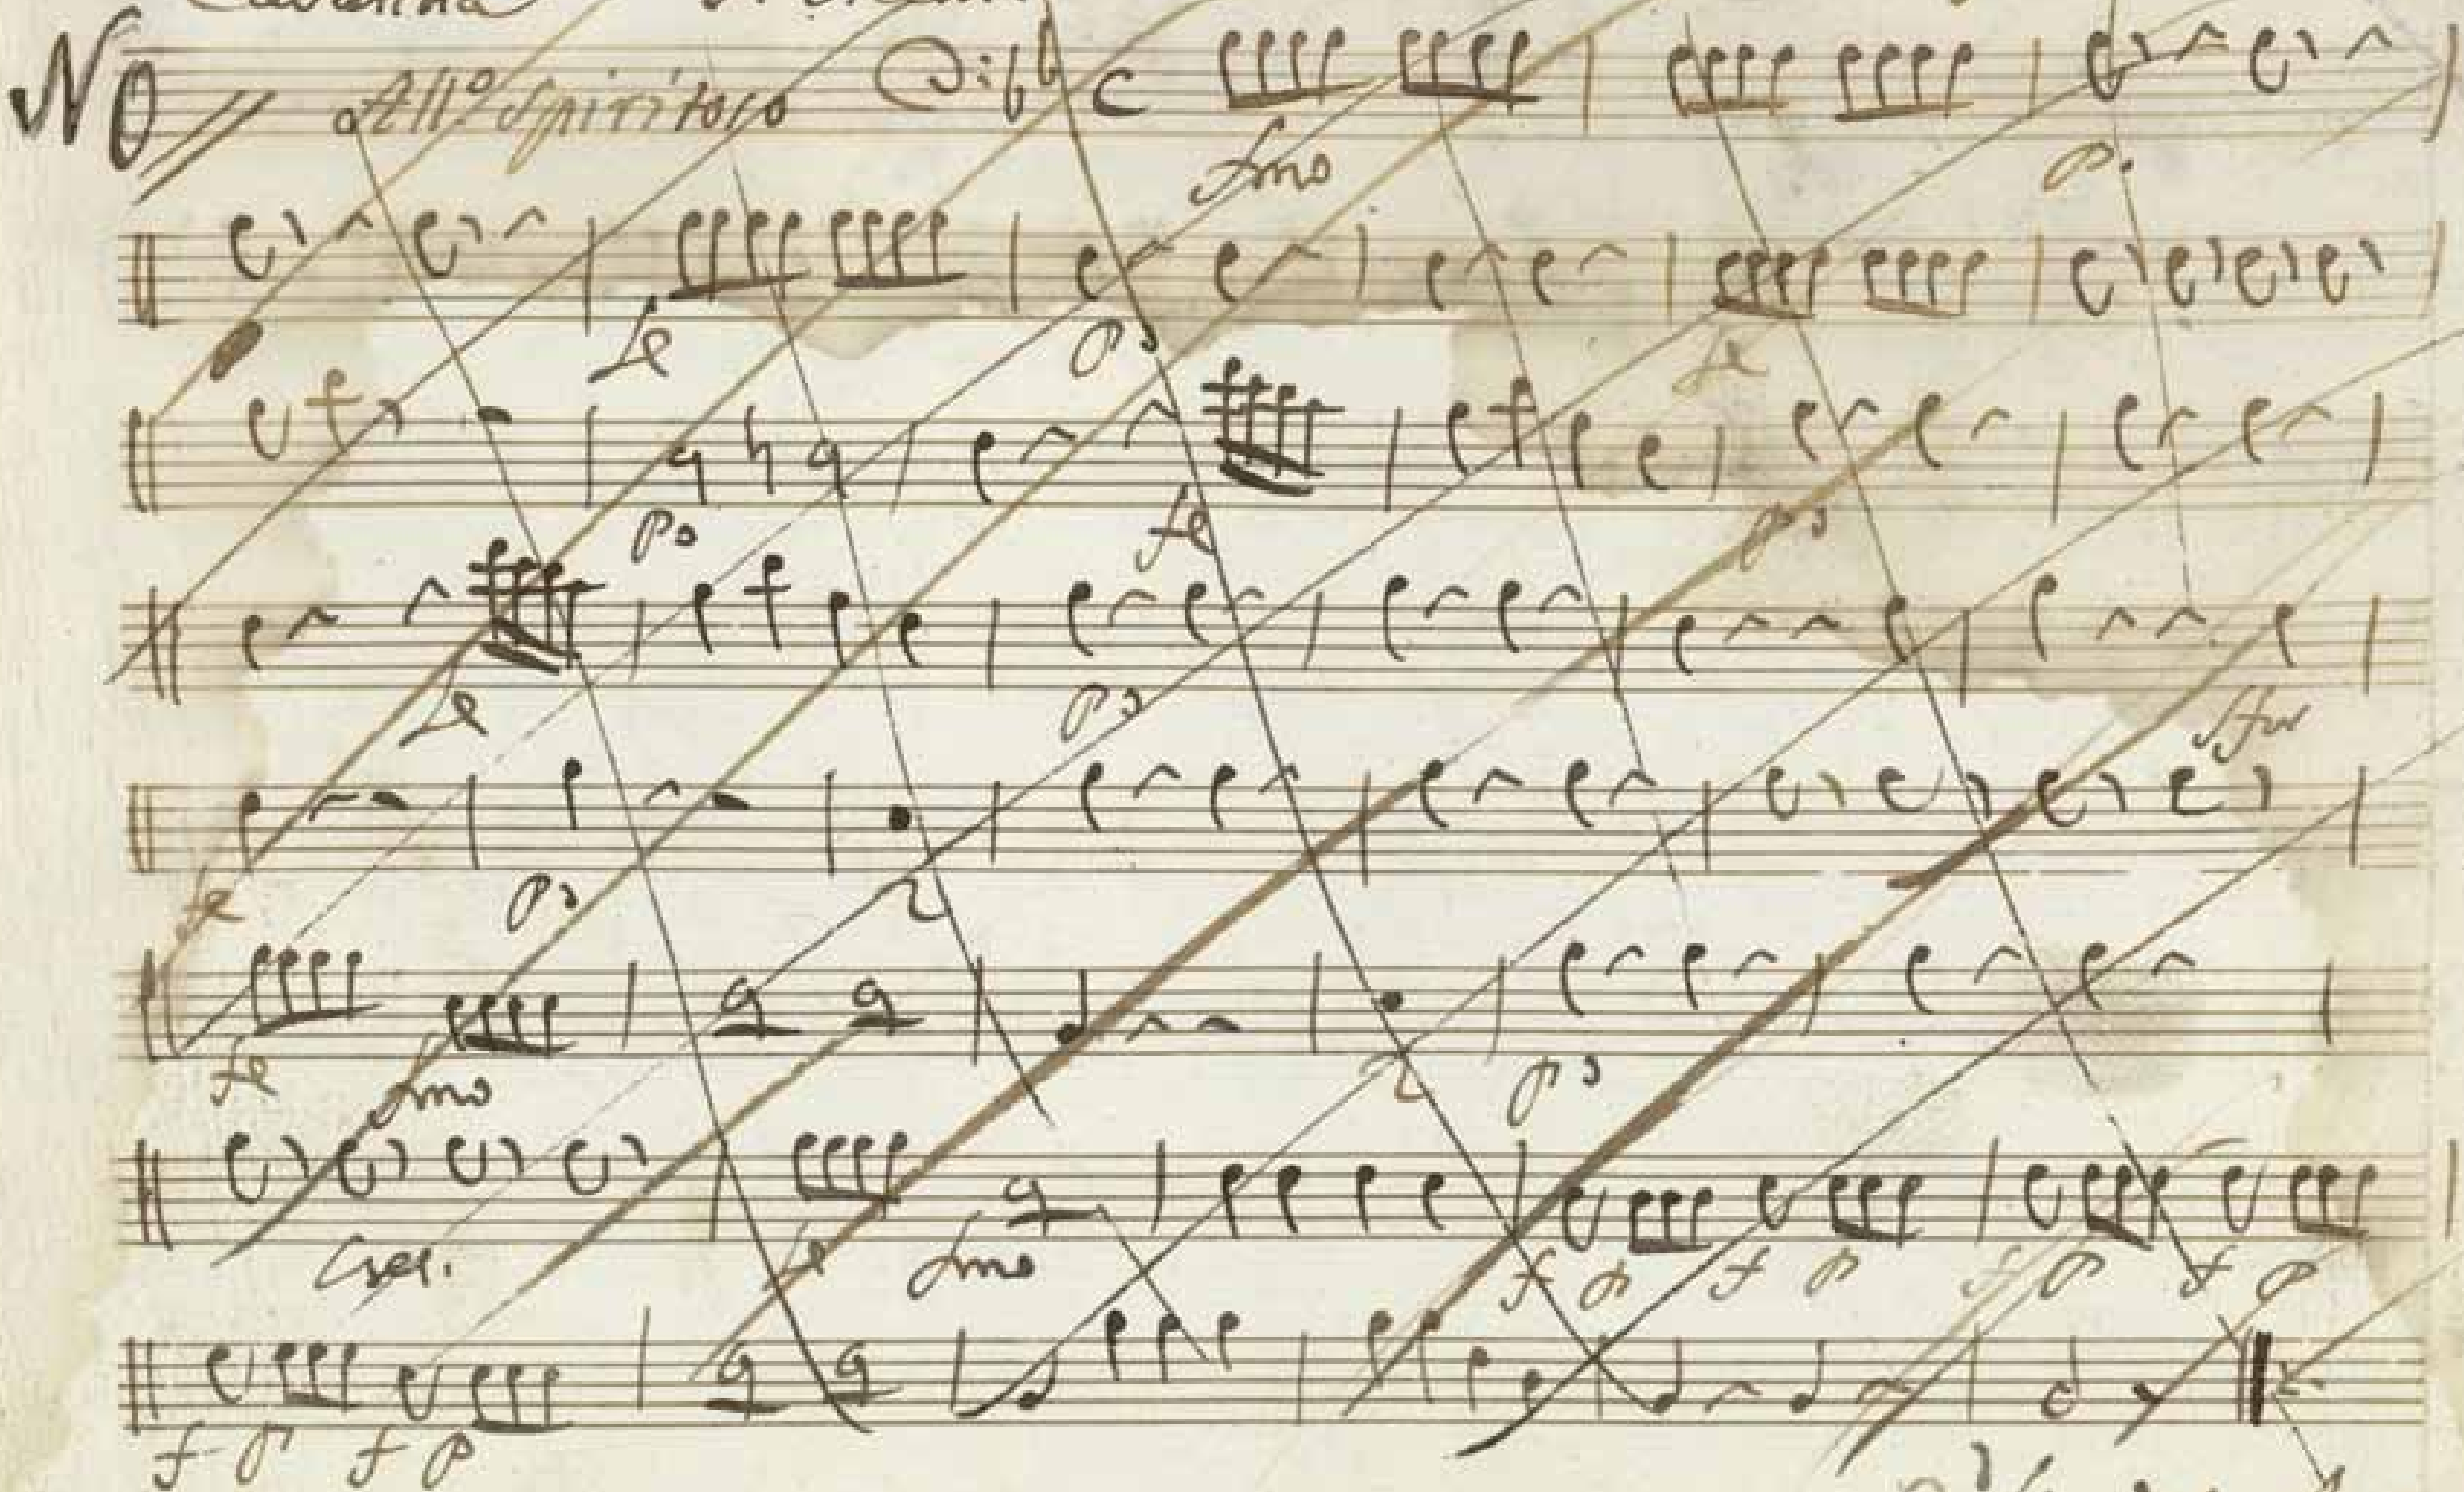 Cavatina
No
All.º Spiritoso C
fmo p.
fe Po fe
Po fe Po
fe Po sfor
fe Po 2
fe fmo 2 Po
Cres. fe fmo f p f p f p f p
f p f p